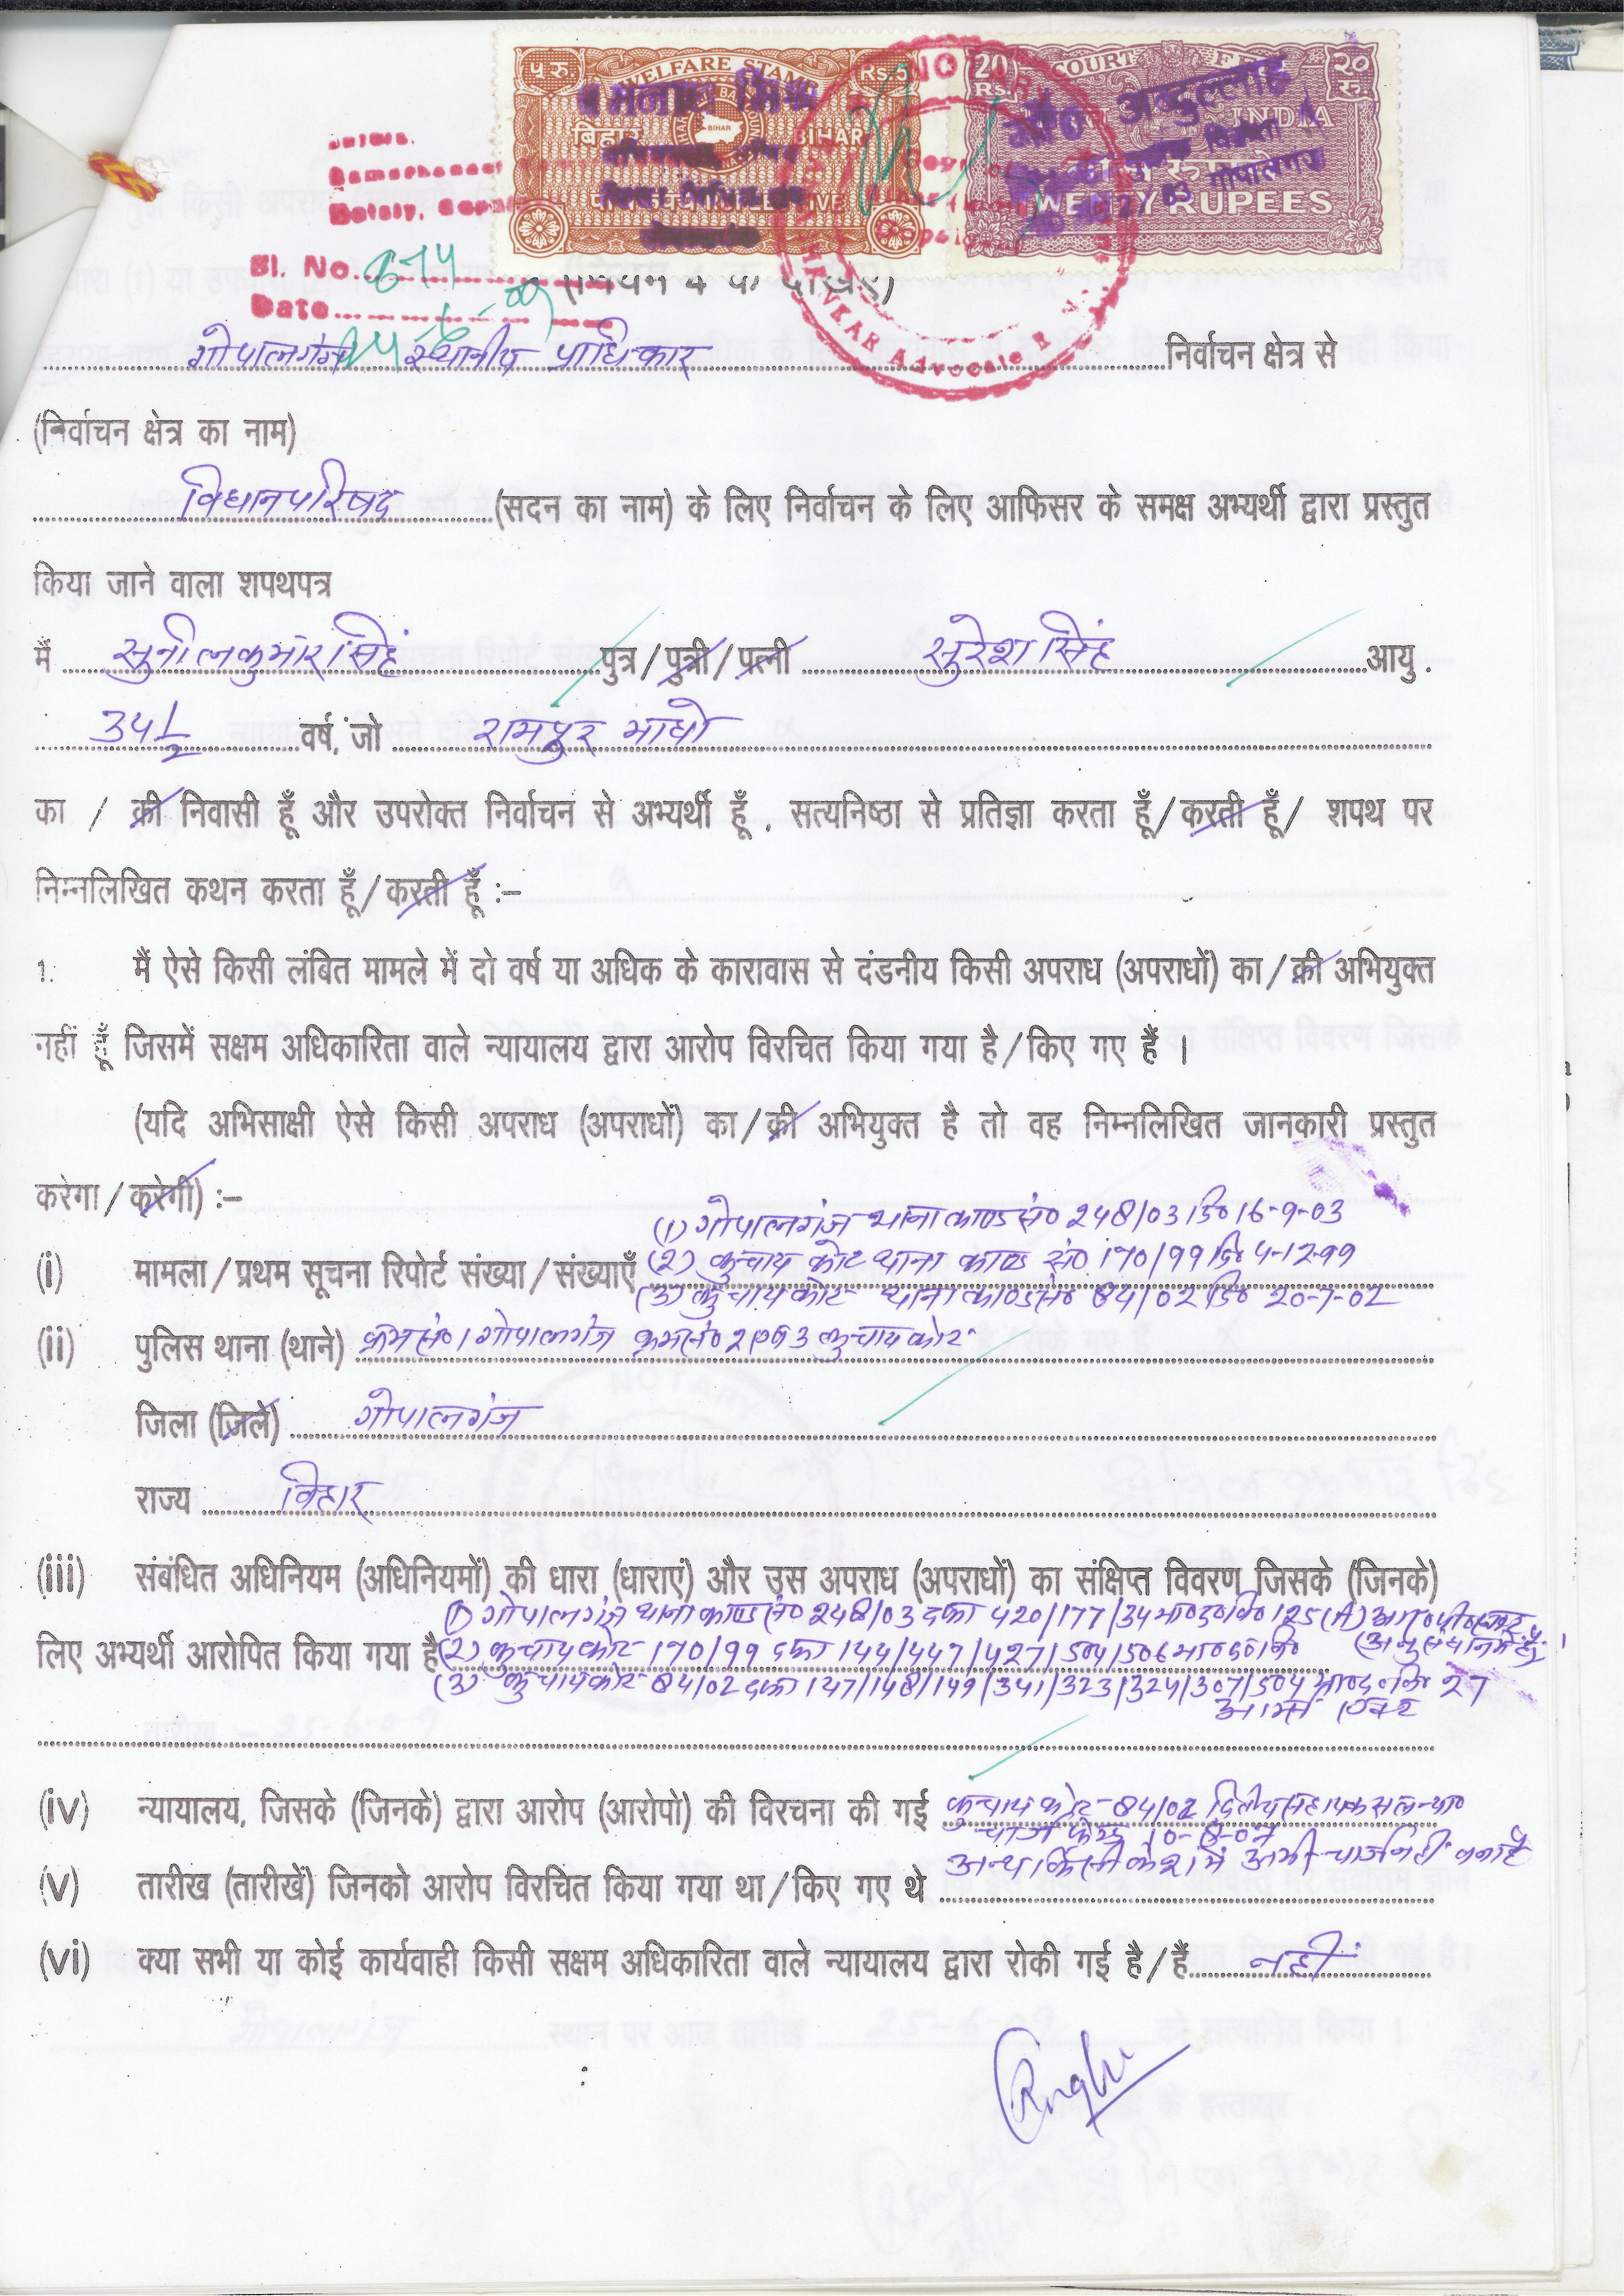 ५ रु. WELFARE STAMP Rs.5
20 Rs. COURT FEE २० रु.
बिहार BIHAR BIHAR
INDIA
मो० अब्दुल्लाह
TWENTY RUPEES
गोपालगंज
Sl. No. 674
Date 24-6-09
(नियम 4 क देखिए)
गोपालगंज स्थानीय प्राधिकार निर्वाचन क्षेत्र से
(निर्वाचन क्षेत्र का नाम)
विधान परिषद (सदन का नाम) के लिए निर्वाचन के लिए आफिसर के समक्ष अभ्यर्थी द्वारा प्रस्तुत
किया जाने वाला शपथपत्र
मैं सुनील कुमार सिंह पुत्र/पुत्री/पत्नी सुरेश सिंह आयु
34 1/2 वर्ष, जो रामपुर माधो
का / की निवासी हूँ और उपरोक्त निर्वाचन से अभ्यर्थी हूँ , सत्यनिष्ठा से प्रतिज्ञा करता हूँ/करती हूँ/ शपथ पर
निम्नलिखित कथन करता हूँ/करती हूँ :–
1. मैं ऐसे किसी लंबित मामले में दो वर्ष या अधिक के कारावास से दंडनीय किसी अपराध (अपराधों) का/की अभियुक्त
नहीं हूँ जिसमें सक्षम अधिकारिता वाले न्यायालय द्वारा आरोप विरचित किया गया है/किए गए हैं ।
(यदि अभिसाक्षी ऐसे किसी अपराध (अपराधों) का/की अभियुक्त है तो वह निम्नलिखित जानकारी प्रस्तुत
करेगा/करेगी) :–
(1) गोपालगंज थाना काण्ड सं० 248/03 दि० 16-9-03
(i) मामला/प्रथम सूचना रिपोर्ट संख्या/संख्याएँ (2) कुचायकोट थाना काण्ड सं० 170/99 दि 4-12-99
(3) कुचायकोट थाना काण्ड सं० 84/02 दि० 20-7-02
(ii) पुलिस थाना (थाने) क्रम सं० 1 गोपालगंज क्रम सं० 2 एवं 3 कुचायकोट
जिला (जिले) गोपालगंज
राज्य बिहार
(iii) संबंधित अधिनियम (अधिनियमों) की धारा (धाराएं) और उस अपराध (अपराधों) का संक्षिप्त विवरण जिसके (जिनके)
(1) गोपालगंज थाना काण्ड सं० 248/03 दफा 420/177/34 भा०द०वि० 125(A)
लिए अभ्यर्थी आरोपित किया गया है (2) कुचायकोट 170/99 दफा 144/447/427/504/506 भा०द०वि
(3) कुचायकोट 84/02 दफा 147/148/149/341/323/324/307/504 भा०द०वि 27
आर्म्स एक्ट
(iv) न्यायालय, जिसके (जिनके) द्वारा आरोप (आरोपो) की विरचना की गई कुचायकोट 84/02 द्वितीय सहायक सत्र
चार्ज फ्रेम 10-8-07
अन्य किसी केश में अभी चार्ज नहीं बना है
(v) तारीख (तारीखें) जिनको आरोप विरचित किया गया था/किए गए थे
(vi) क्या सभी या कोई कार्यवाही किसी सक्षम अधिकारिता वाले न्यायालय द्वारा रोकी गई है/हैं नहीं